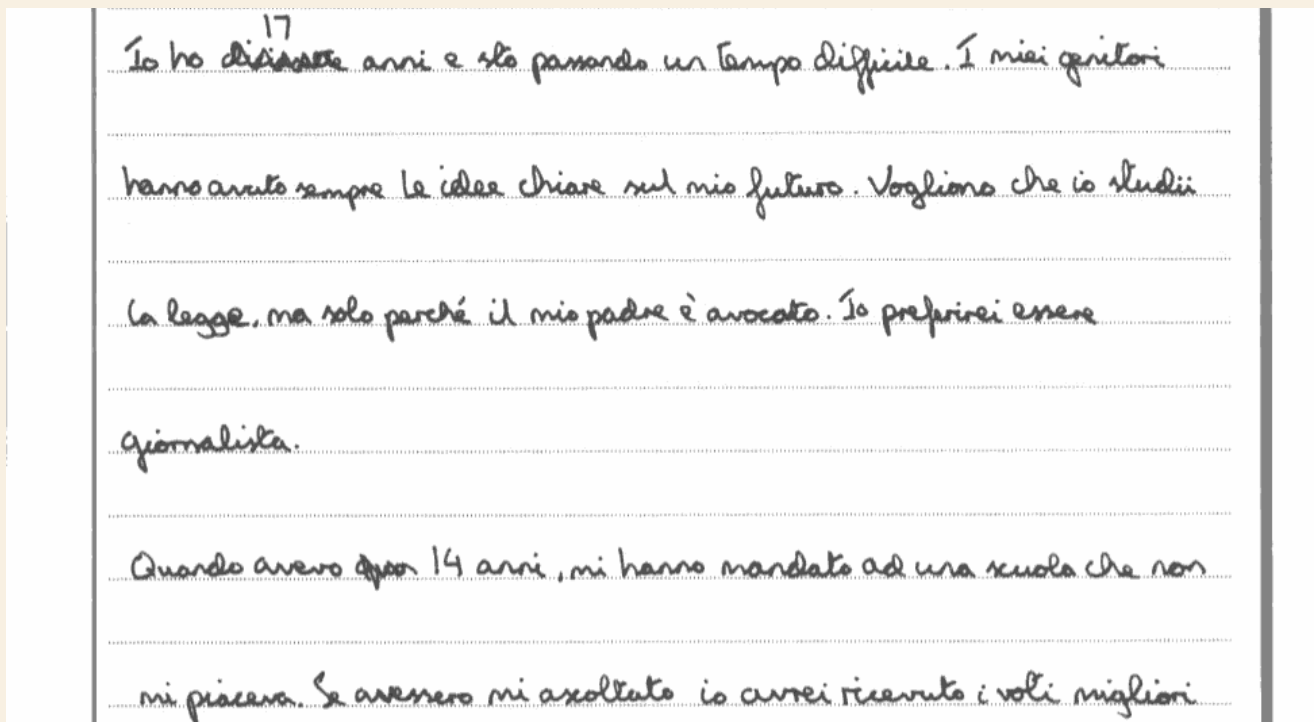 17
Io ho anni e sto passando un tempo difficile. I miei genitori
hanno avuto sempre le idee chiare sul mio futuro. Vogliono che io studii
la legge, ma solo perché il mio padre è avocato. Io preferirei essere
giornalista.
Quando avevo 14 anni, mi hanno mandato ad una scuola che non
mi piaceva. Se avessero mi ascoltato io avrei ricevuto i voti migliori